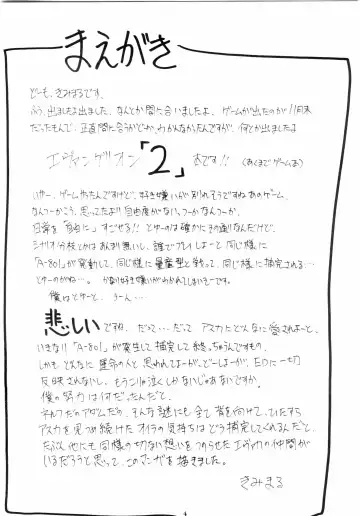 まえがき
どーも、きみまるです。
ふう、出ましたよ出ました。なんとか間に合いましたよ、ゲームが出たのが11月末
だったもんで、正直間に合うかどーか、わかんなかったんですが、何とか出ましたよ
エヴァンゲリオン「2」本です!! (あくまでゲームネ)
いやー、ゲームやったんですけど、好き嫌いが別れそうですねあのゲーム。
なんつーかこう、思ってたより自由度がない、つーかなんつーか。
日常を「自由に」すごせる!! とゆーのは確かにその通りなんだけど、
シナリオ分岐とかはあんまり無いし、誰でプレイしよーと同じ様に
「A-801」が発動して、同じ様に量産型と戦って、同じ様に補完される…
とゆーのがね…。 かなり好き嫌いがわかれてしまいそーです。
僕はとゆーと、うーん…
悲しいですね、だって…だって アスカにどんなに愛されよーと、
いきなり「A-801」が発生して補完して終っちゃうんですもの。
しかもどんなに運命の人と思われてよーが、どーしよーが、EDに一切
反映されないし、もうこりゃ泣くしかないじゃあないですか。
僕の努力は何だったんだと。
ネルフだのアダムだの、そんな謎にも全て背を向けて、ひたすら
アスカを見つめ続けたオイラの気持ちはどう補完してくれるんだと。
たぶん他にも同様の切ない想いをつのらせたエヴァ2の仲間が
いるだろうと思って、このマンガを描きました。
きみまる